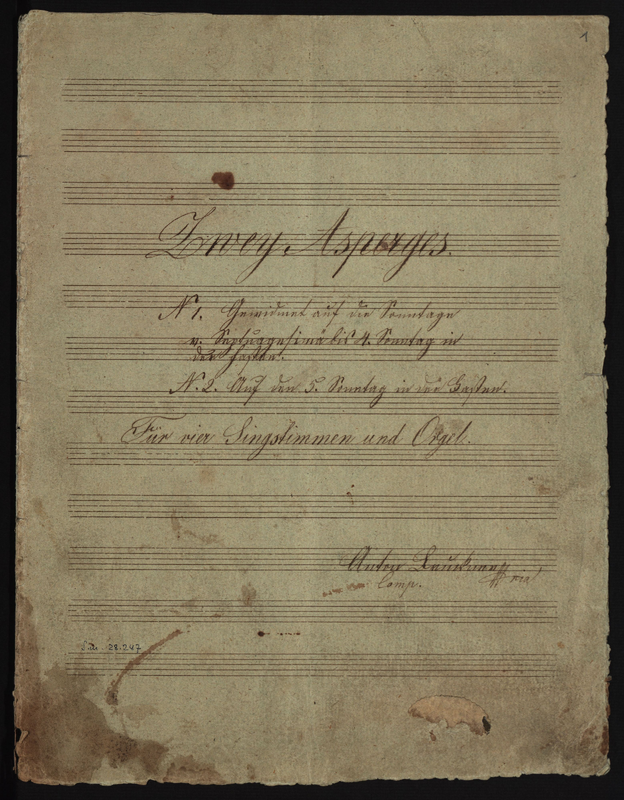 1
Zwey Asperges.
N 1. Gewidmet auf die Sonntage
v. Septuagesima bis 4. Sonntag in
der Fasten.
N. 2. Auf den 5. Sonntag in der Fasten.
Für vier Singstimmen und Orgel.
Anton Bruckner
Comp.
28.247